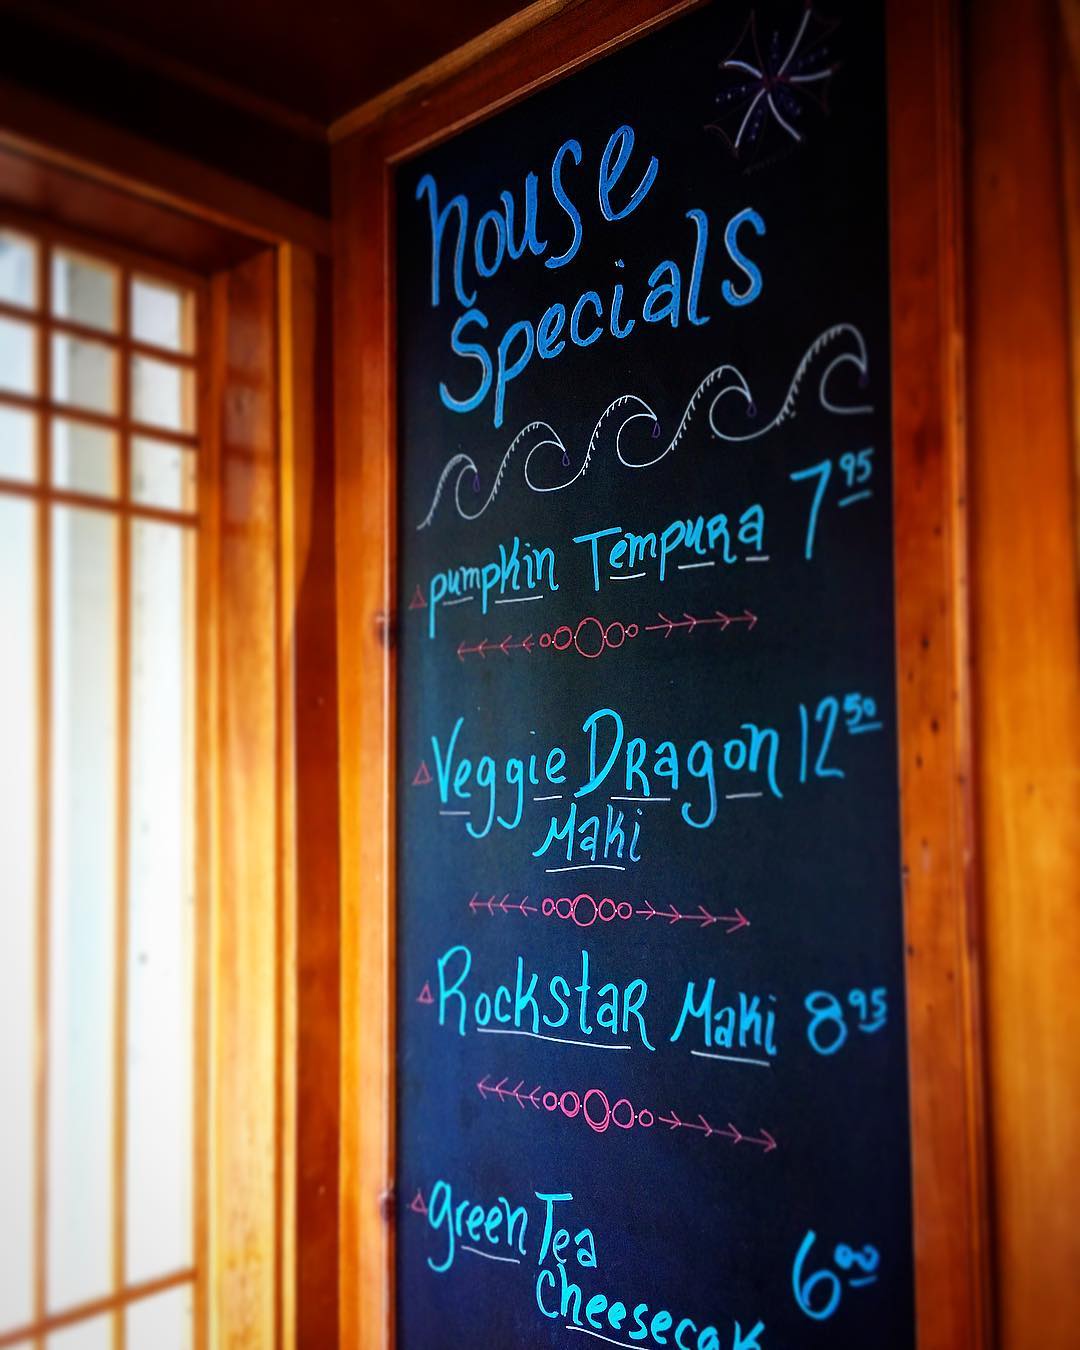 house
Specials
pumpkin Tempura 7 95
Veggie Dragon 12 50
Maki
Rockstar Maki 8 95
green Tea
Cheesecak 6 00